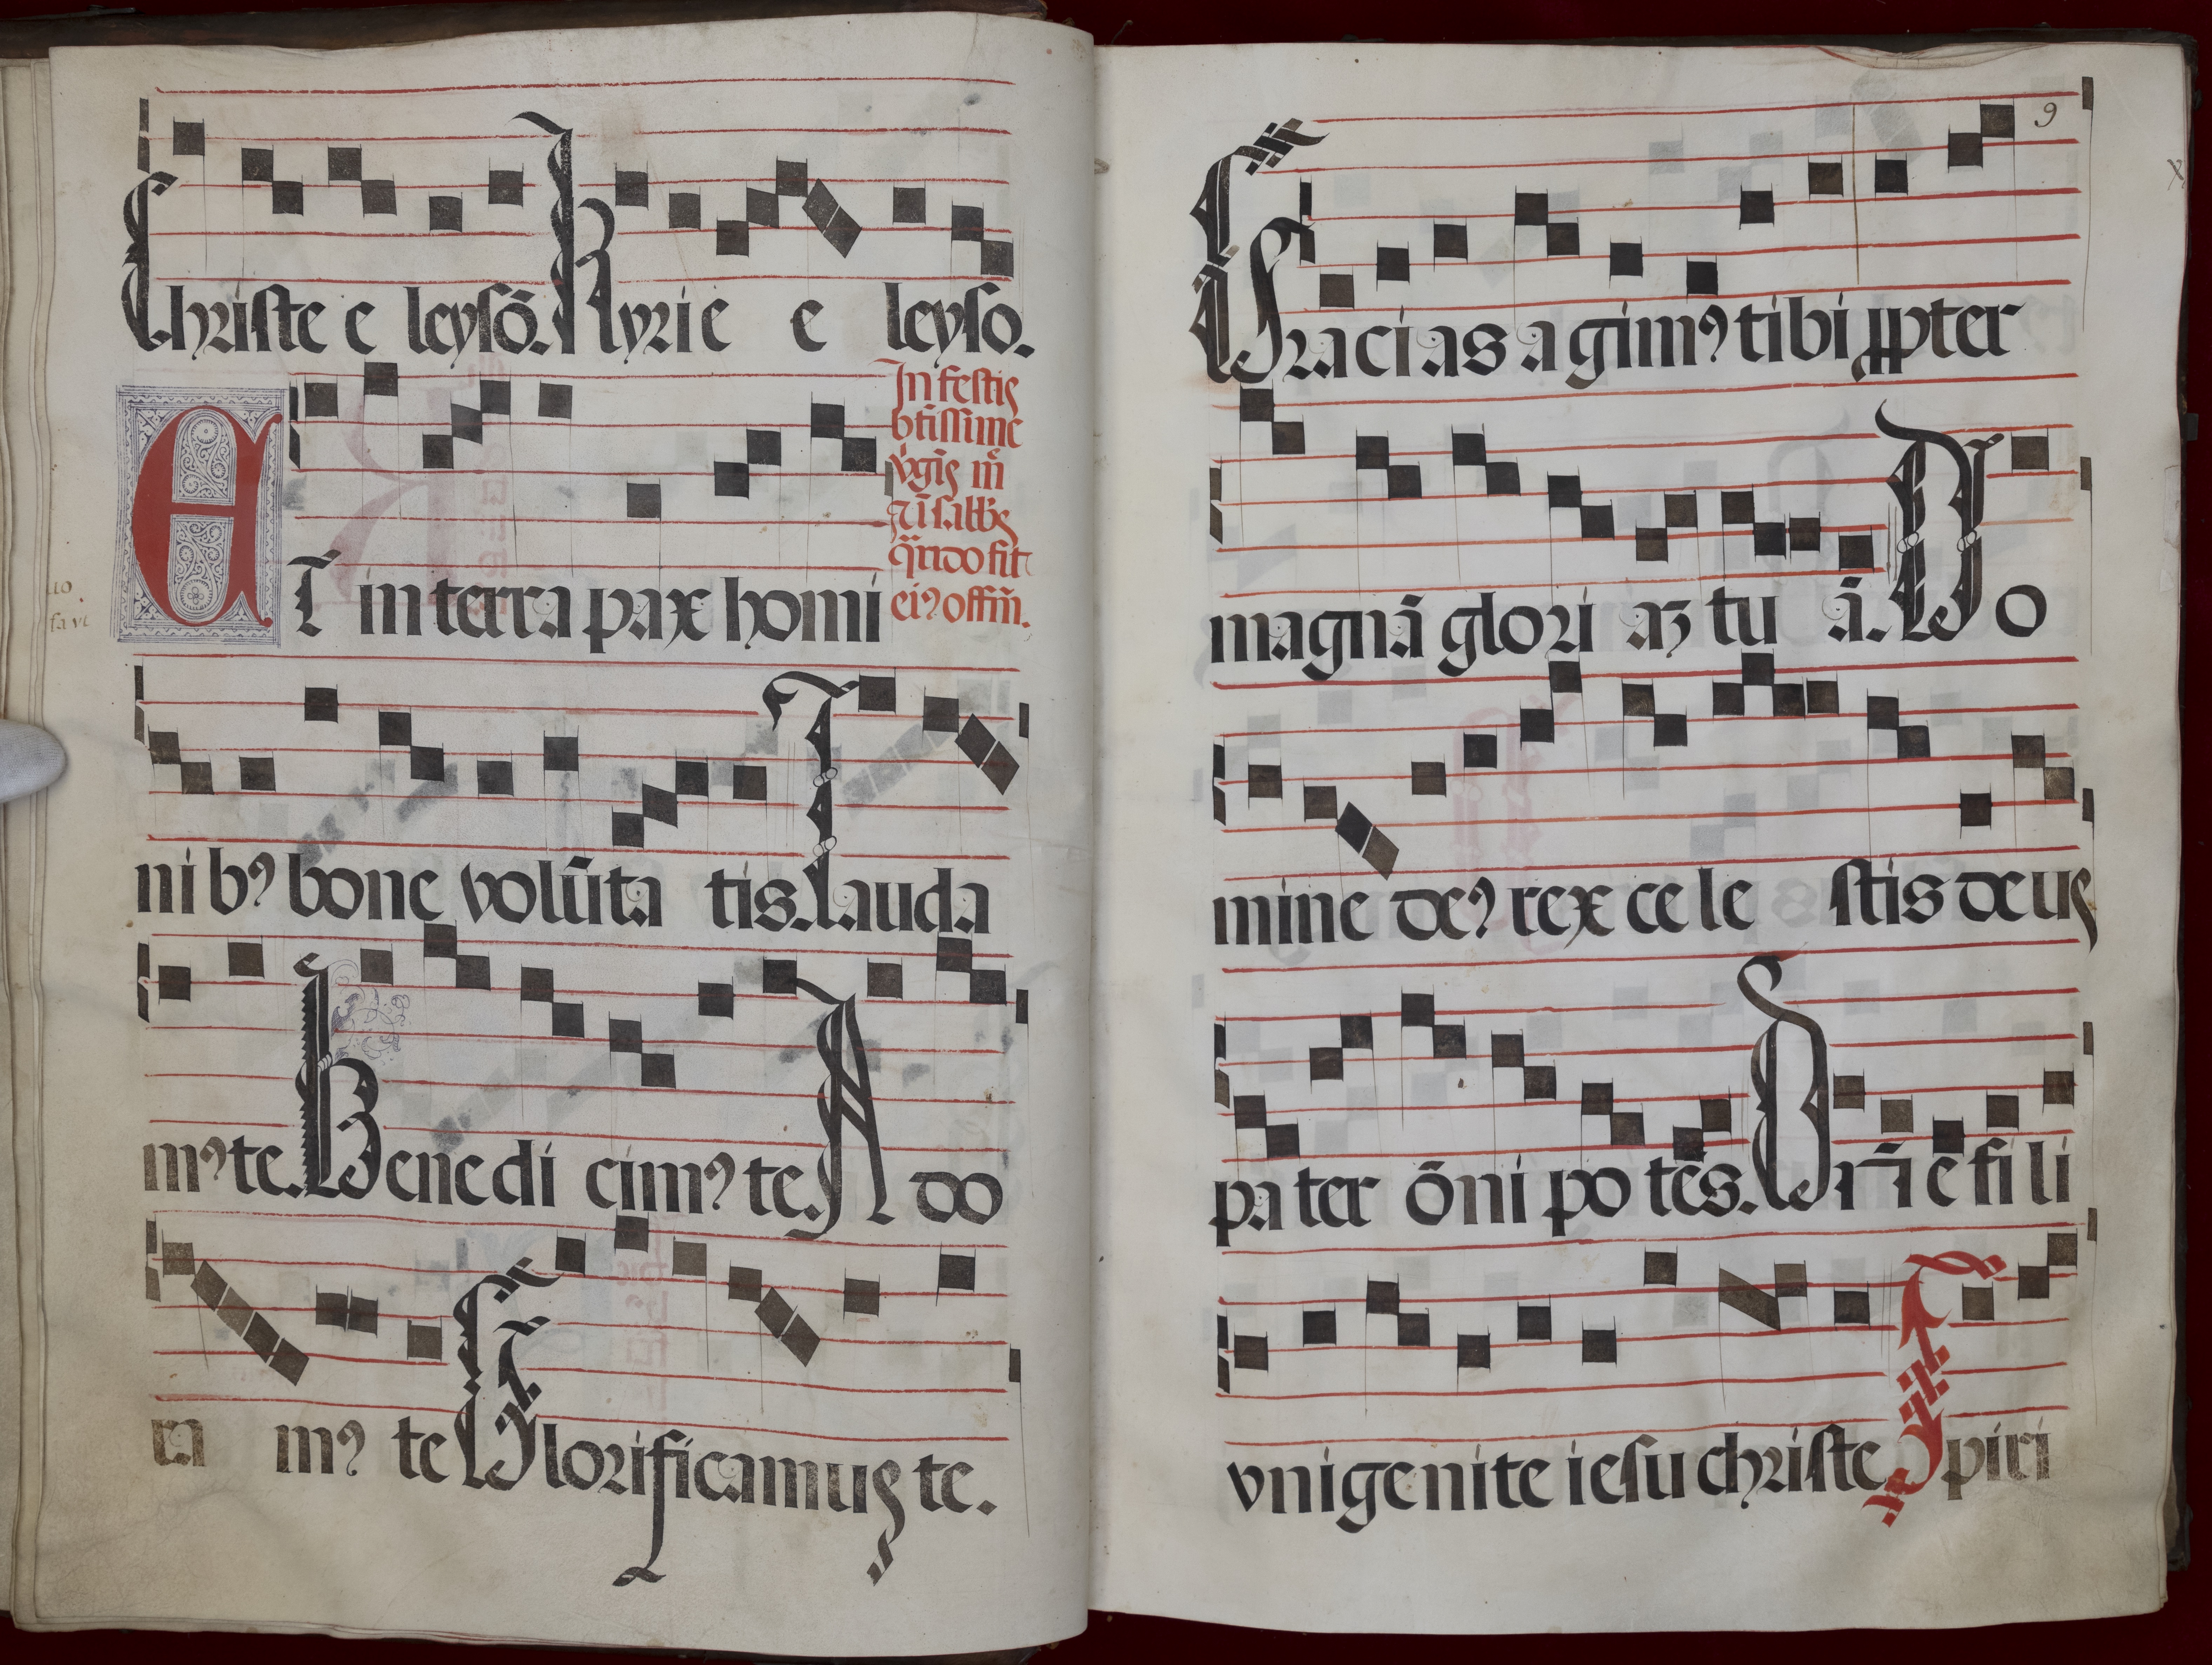 Christe e leysō. Kyrie e leyso.
In festis
btissime
vgis m̄
qn̄do fit
ei⁹ offm̄.
ET in terra pax homi
ni b⁹ bone volūta tis. Lauda
m⁹ te. Bene di cim⁹ te. A do
ra m⁹ te Glorificamus te.
9
Gracias a gim⁹ tibi ꝓpter
magnā glori aꝫ tu ā. Do
mine de⁹ rex ce le stis deus
pa ter ōni po tēs. Dn̄ e fi li
vnigenite iesu christe Spiri